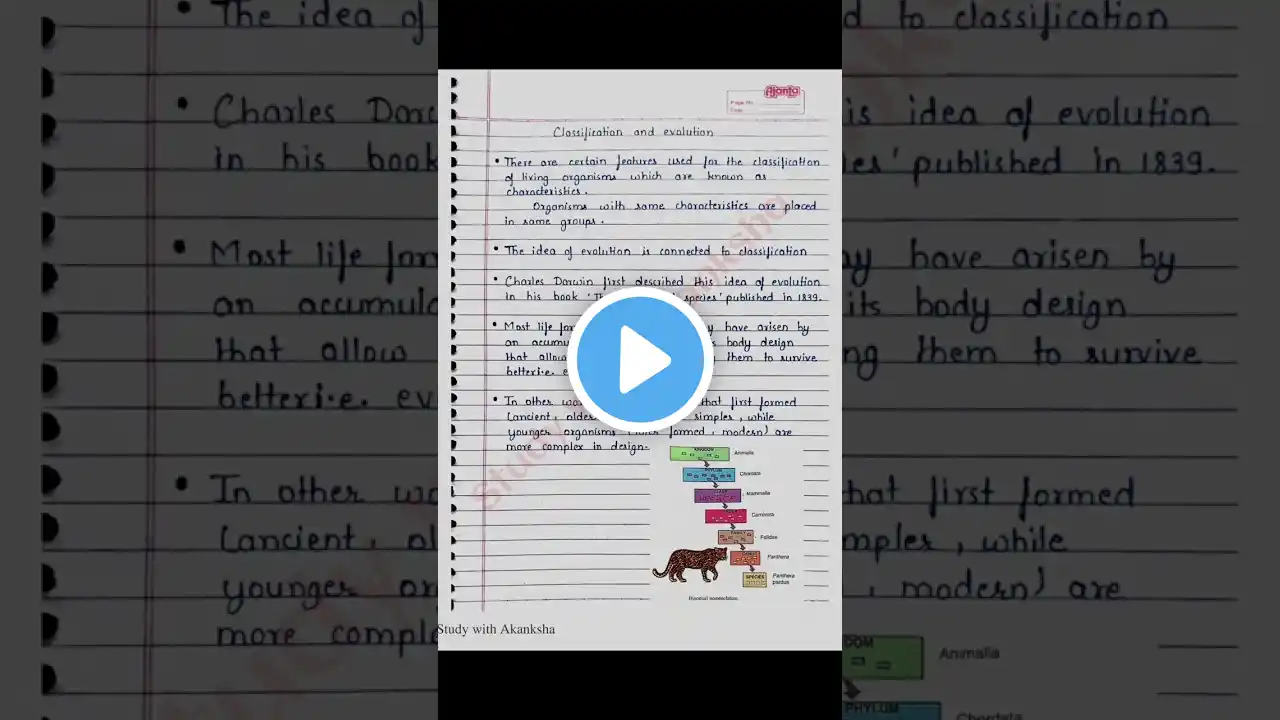 Ajanta
Page No.
Date
Classification and evolution
• There are certain features used for the classification
of living organisms which are known as
characteristics.
Organisms with same characteristics are placed
in same groups.
• The idea of evolution is connected to classification
• Charles Darwin first described this idea of evolution
in his book 'Th species' published in 1839.
• Most life for have arisen by
an accumu body design
that allow them to survive
better i.e. e
• In other wo that first formed
(ancient, older simpler, while
younger organisms formed, modern) are
more complex in design.
KINGDOM Animalia
PHYLUM Chordata
Mammalia
Carnivora
FAMILY Felidae
Panthera
SPECIES Panthera
pardus
Binomial nomenclature
Study with Akanksha
The idea of d to classification
Charles Dar is idea of evolution
in his book ies' published in 1839.
Most life for ay have arisen by
an accumula its body design
that allow ng them to survive
better i.e. ev
In other wo hat first formed
(ancient, ol mpler, while
younger or , modern) are
more comple
DOM Animalia
PHYLUM Chordata